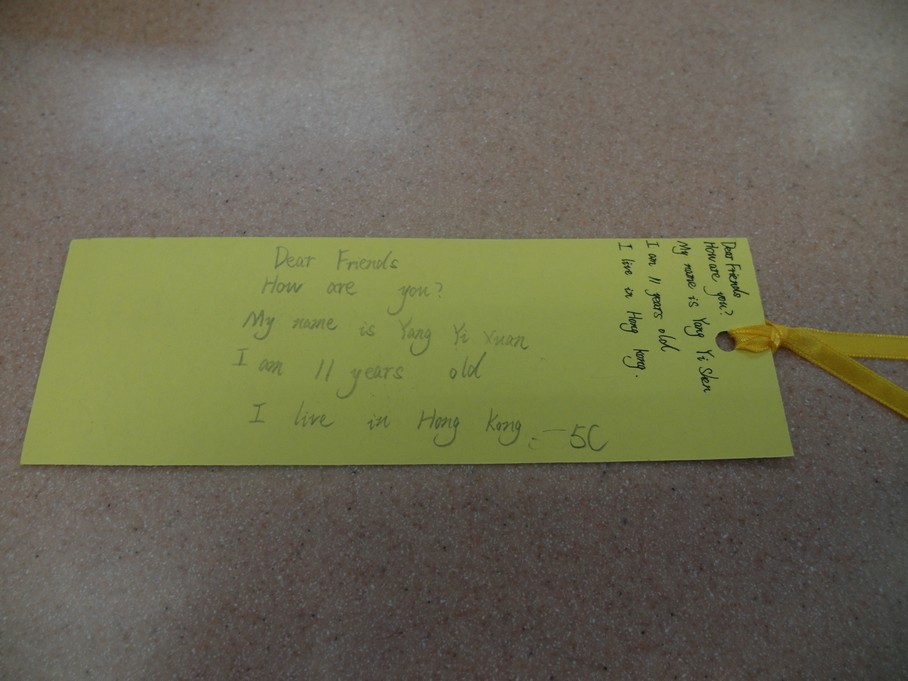 Dear Friends
How are you?
My name is Yang Yi Xuan
I am 11 years old
I live in Hong Kong. — 5C
Dear Friends
How are you?
My name is Yang Yi Shen
I am 11 years old
I live in Hong Kong.